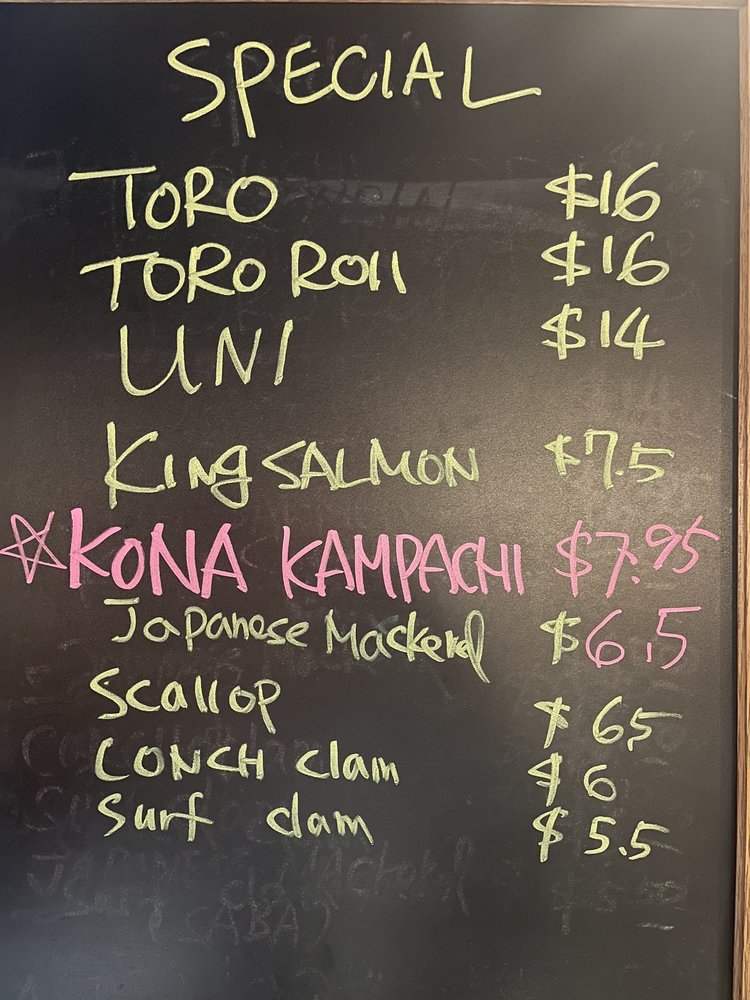 SPECIAL
TORO $16
TORO ROll $16
UNI $14
King SALMON $7.5
☆KONA KAMPACHI $7.95
Japanese Mackerel $6.5
Scallop $6.5
CONCH clam $6
Surf clam $5.5